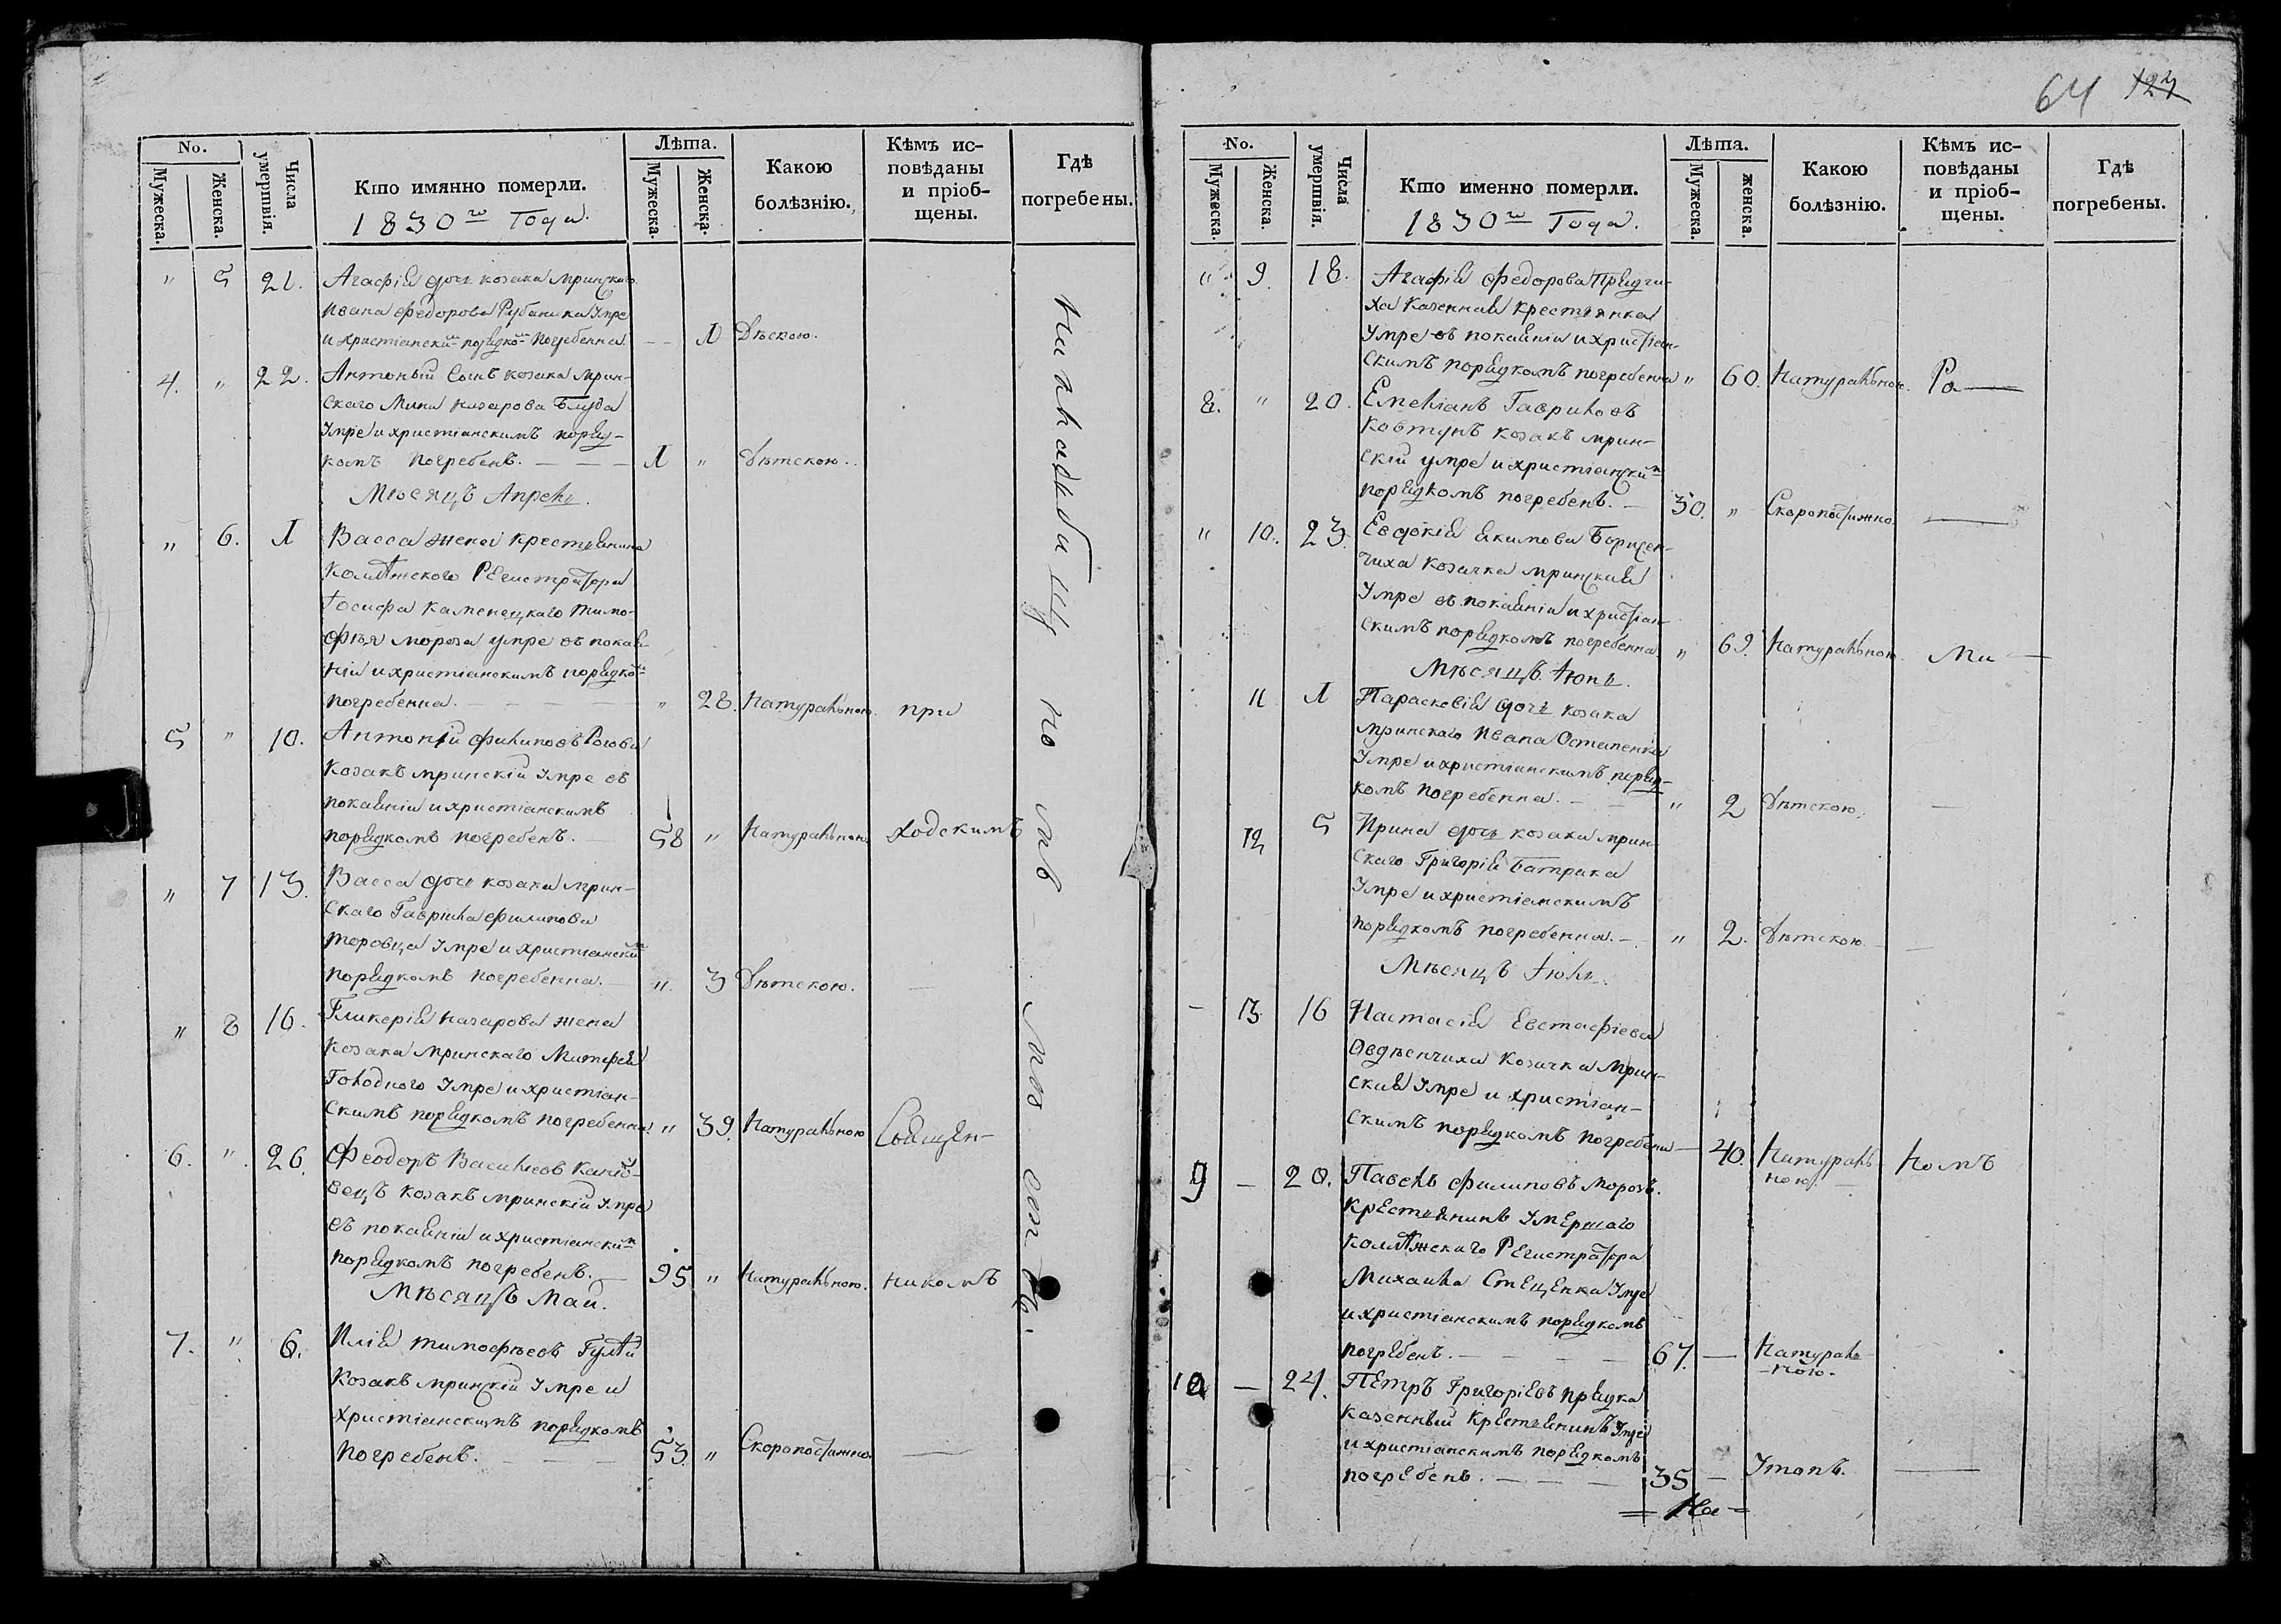 64 123
No.
Мужеска.
Женска.
Числа умертвія.
Кто имянно померли.
1830го Года.
Лѣта.
Мужеска.
Женска.
Какою болѣзнію.
Кѣмъ ис-
повѣданы
и пріоб-
щены.
Гдѣ
погребены.
" 5 21. Агафія дочь козака мринскаго
Ивана Федорова Рубаника Умре
и христіанскимъ порядкомъ погребенна — 1 Дѣскою.
4. " 22. Антоній Сынъ козака мрин-
скаго Мины назарова
Умре и христіанскимъ поряд-
комъ погребенъ. — — — 1 " Дѣтскою.
Мѣсяцъ Апрель.
" 6. 1 Васса жена крестьянина
Коллѣжского Регистратора
Іосифа Каменецкаго Тимо-
фѣя мороза умре въ покая-
ніи и христіанскимъ порядкомъ
погребенна. — — — " 28. Натуральною. при
5 " 10. Антоній Филиповъ
козакъ мринскій Умре въ
покаяніи и христіанскимъ
порядкомъ погребенъ. — 58 " Натуральною ходскимъ
" 7 13. Васса дочь козака мрин-
скаго Гавріила Филипова
Умре и христіанскимъ
порядкомъ погребенна. — " 3 Дѣтскою. —
" 8 16. Гликерія назарова жена
козака мринскаго Митофея
Голодного Умре и христіан-
скимъ порядкомъ погребенна. " 39. Натуральною Священ-
6. " 26. Феодоръ Васильевъ
козакъ мринскій Умре
въ покаяніи и христіанскимъ
порядкомъ погребенъ. — 95 " Натуральною. никомъ
Мѣсяцъ Май.
7. " 6. Илія тимофѣевъ Гулѣй
козакъ мринскій Умре и
христіанскимъ порядкомъ
погребенъ. — — — 53. " Скоропостижно. —
На кладбищу по
No.
Мужеска.
Женска.
Числа умертвія.
Кто именно померли.
1830го Года.
Лѣта.
Мужеска.
женска.
Какою
болѣзнію.
Кѣмъ ис-
повѣданы
и пріоб-
щены.
Гдѣ
погребены.
" 9. 18. Агафія Федорова Прядчи-
ха Казенная Крестьянка
Умре въ покаяніи и христіан-
скимъ порядкомъ погребенна " 60. Натуральною. Ро —
8. " 20. Емеліанъ Гавриловъ
Ковтунъ козакъ мрин-
скій умре и христіанскимъ
порядкомъ погребенъ. — 30. " Скоропостижно. —
" 10. 23. Евдокія Якимова Борисен-
чиха козачка мринская
Умре въ покаяніи и христіан-
скимъ порядкомъ погребенна. " 69. Натуральною. Ма —
Мѣсяцъ Іюнь.
11 1 Парасковія дочь козака
мринскаго Ивана Остапенка
Умре и христіанскимъ поряд-
комъ погребенна. — — " 2 Дѣтскою. —
12 5 Ирина дочь козака мрин-
скаго Григорія Батрака
Умре и христіанскимъ
порядкомъ погребенна. — " 2. Дѣтскою. —
Мѣсяцъ Іюль.
— 13 16 Настасія Евстафіева
Овдѣенчиха Козачка Мрин-
ская Умре и христіан-
скимъ порядкомъ погребена — 40. Натураль-
ною. — номъ
9 — 20. Павелъ Филиповъ Морозъ.
Крестьянинъ Умершаго
Коллѣжскаго Регистратора
Михаила Стеценка Умре
и христіанскимъ порядкомъ
погребенъ. — — — 67. — Натураль-
-ною.
10 — 24. Петръ Григоріевъ прядка
казенный Крестьянинъ Умре
и христіанскимъ порядкомъ
погребенъ. — — — 35 — Утопъ. —
= На =